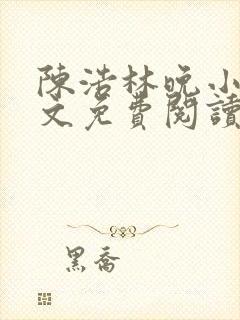 陳浩林晚小
文免費閱讀
黑喬